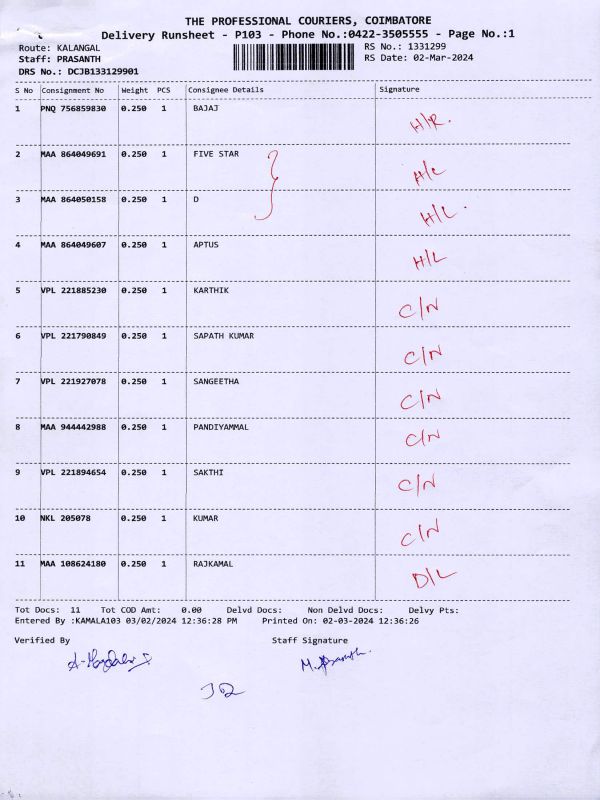 THE PROFESSIONAL COURIERS, COIMBATORE
Delivery Runsheet - P103 - Phone No.:0422-3505555 - Page No.:1
Route: KALANGAL RS No.: 1331299
Staff: PRASANTH RS Date: 02-Mar-2024
DRS No.: DCJB133129901
S No Consignment No Weight PCS Consignee Details Signature
1 PNQ 756859830 0.250 1 BAJAJ H/R.
2 MAA 864049691 0.250 1 FIVE STAR H/L
3 MAA 864050158 0.250 1 D H/L.
4 MAA 864049607 0.250 1 APTUS H/L
5 VPL 221885230 0.250 1 KARTHIK C/N
6 VPL 221790849 0.250 1 SAPATH KUMAR C/N
7 VPL 221927078 0.250 1 SANGEETHA C/N
8 MAA 944442988 0.250 1 PANDIYAMMAL C/N
9 VPL 221894654 0.250 1 SAKTHI C/N
10 NKL 205078 0.250 1 KUMAR C/N
11 MAA 108624180 0.250 1 RAJKAMAL D/L
Tot Docs: 11 Tot COD Amt: 0.00 Delvd Docs: Non Delvd Docs: Delvy Pts:
Entered By :KAMALA103 03/02/2024 12:36:28 PM Printed On: 02-03-2024 12:36:26
Verified By Staff Signature
M. Prasanth.